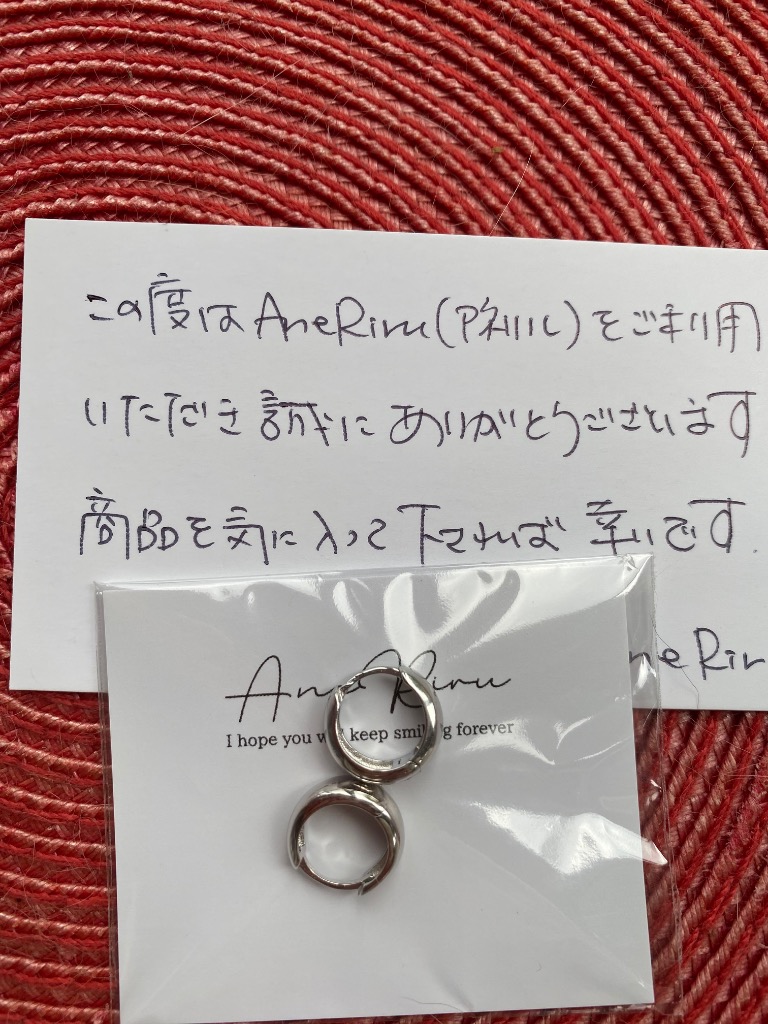 この度は AneRiru(アネリル)をご利用
いただき誠にありがとうございます
商品を気に入って下されば幸いです.
neRir
AneRiru
I hope you keep forever